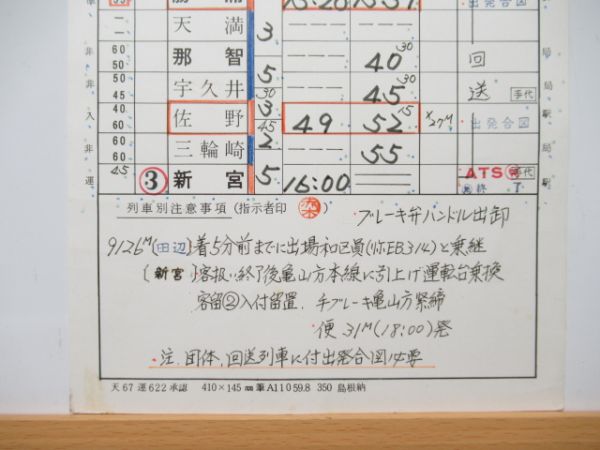 天満 3
那智 40 30
5
宇久井 45 30
30
佐野 3 49 52 15 ×27M 出発合図
45
三輪崎 2 55
③ 新宮 5 16:00
回
送
手代
ATS
終 T
列車別注意事項 (指示者印 ) ブレーキ弁ハンドル出卸
9126M(田辺)着5分前までに出場和区員(弥EB314)と乗継
(新宮)客扱い終了後亀山方本線に引上げ運転台乗換
客留②入付留置、手ブレーキ亀山方緊締
便 31M(18:00)発
注、団体、回送列車に付出発合図必要
天67運622承認 410×145㎜筆A11059.8 350 島根納